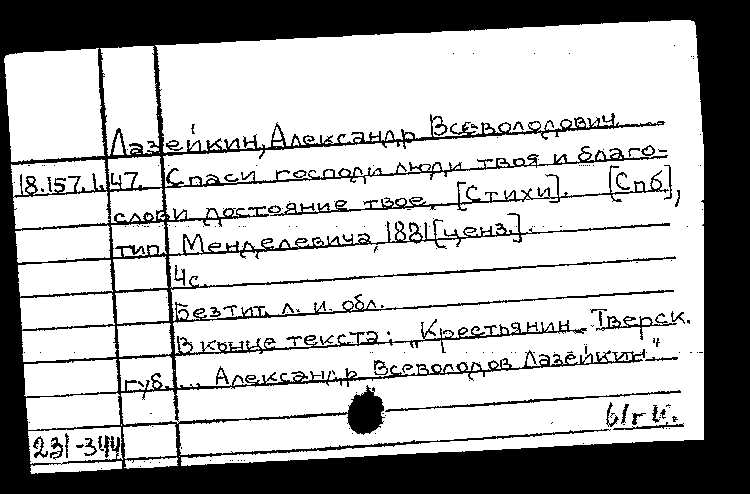 Лазейкин, Александр Всеволодович
18.157.1.47. Спаси господи люди твоя и благо-
слови достояние твое. [Стихи]. [Спб],
тип. Менделевича, 1881 [ценз.].
4с.
Без тит. л. и. обл.
В конце текста: „Крестьянин Тверск.
губ. ... Александр Всеволодов Лазейкин"
231-344